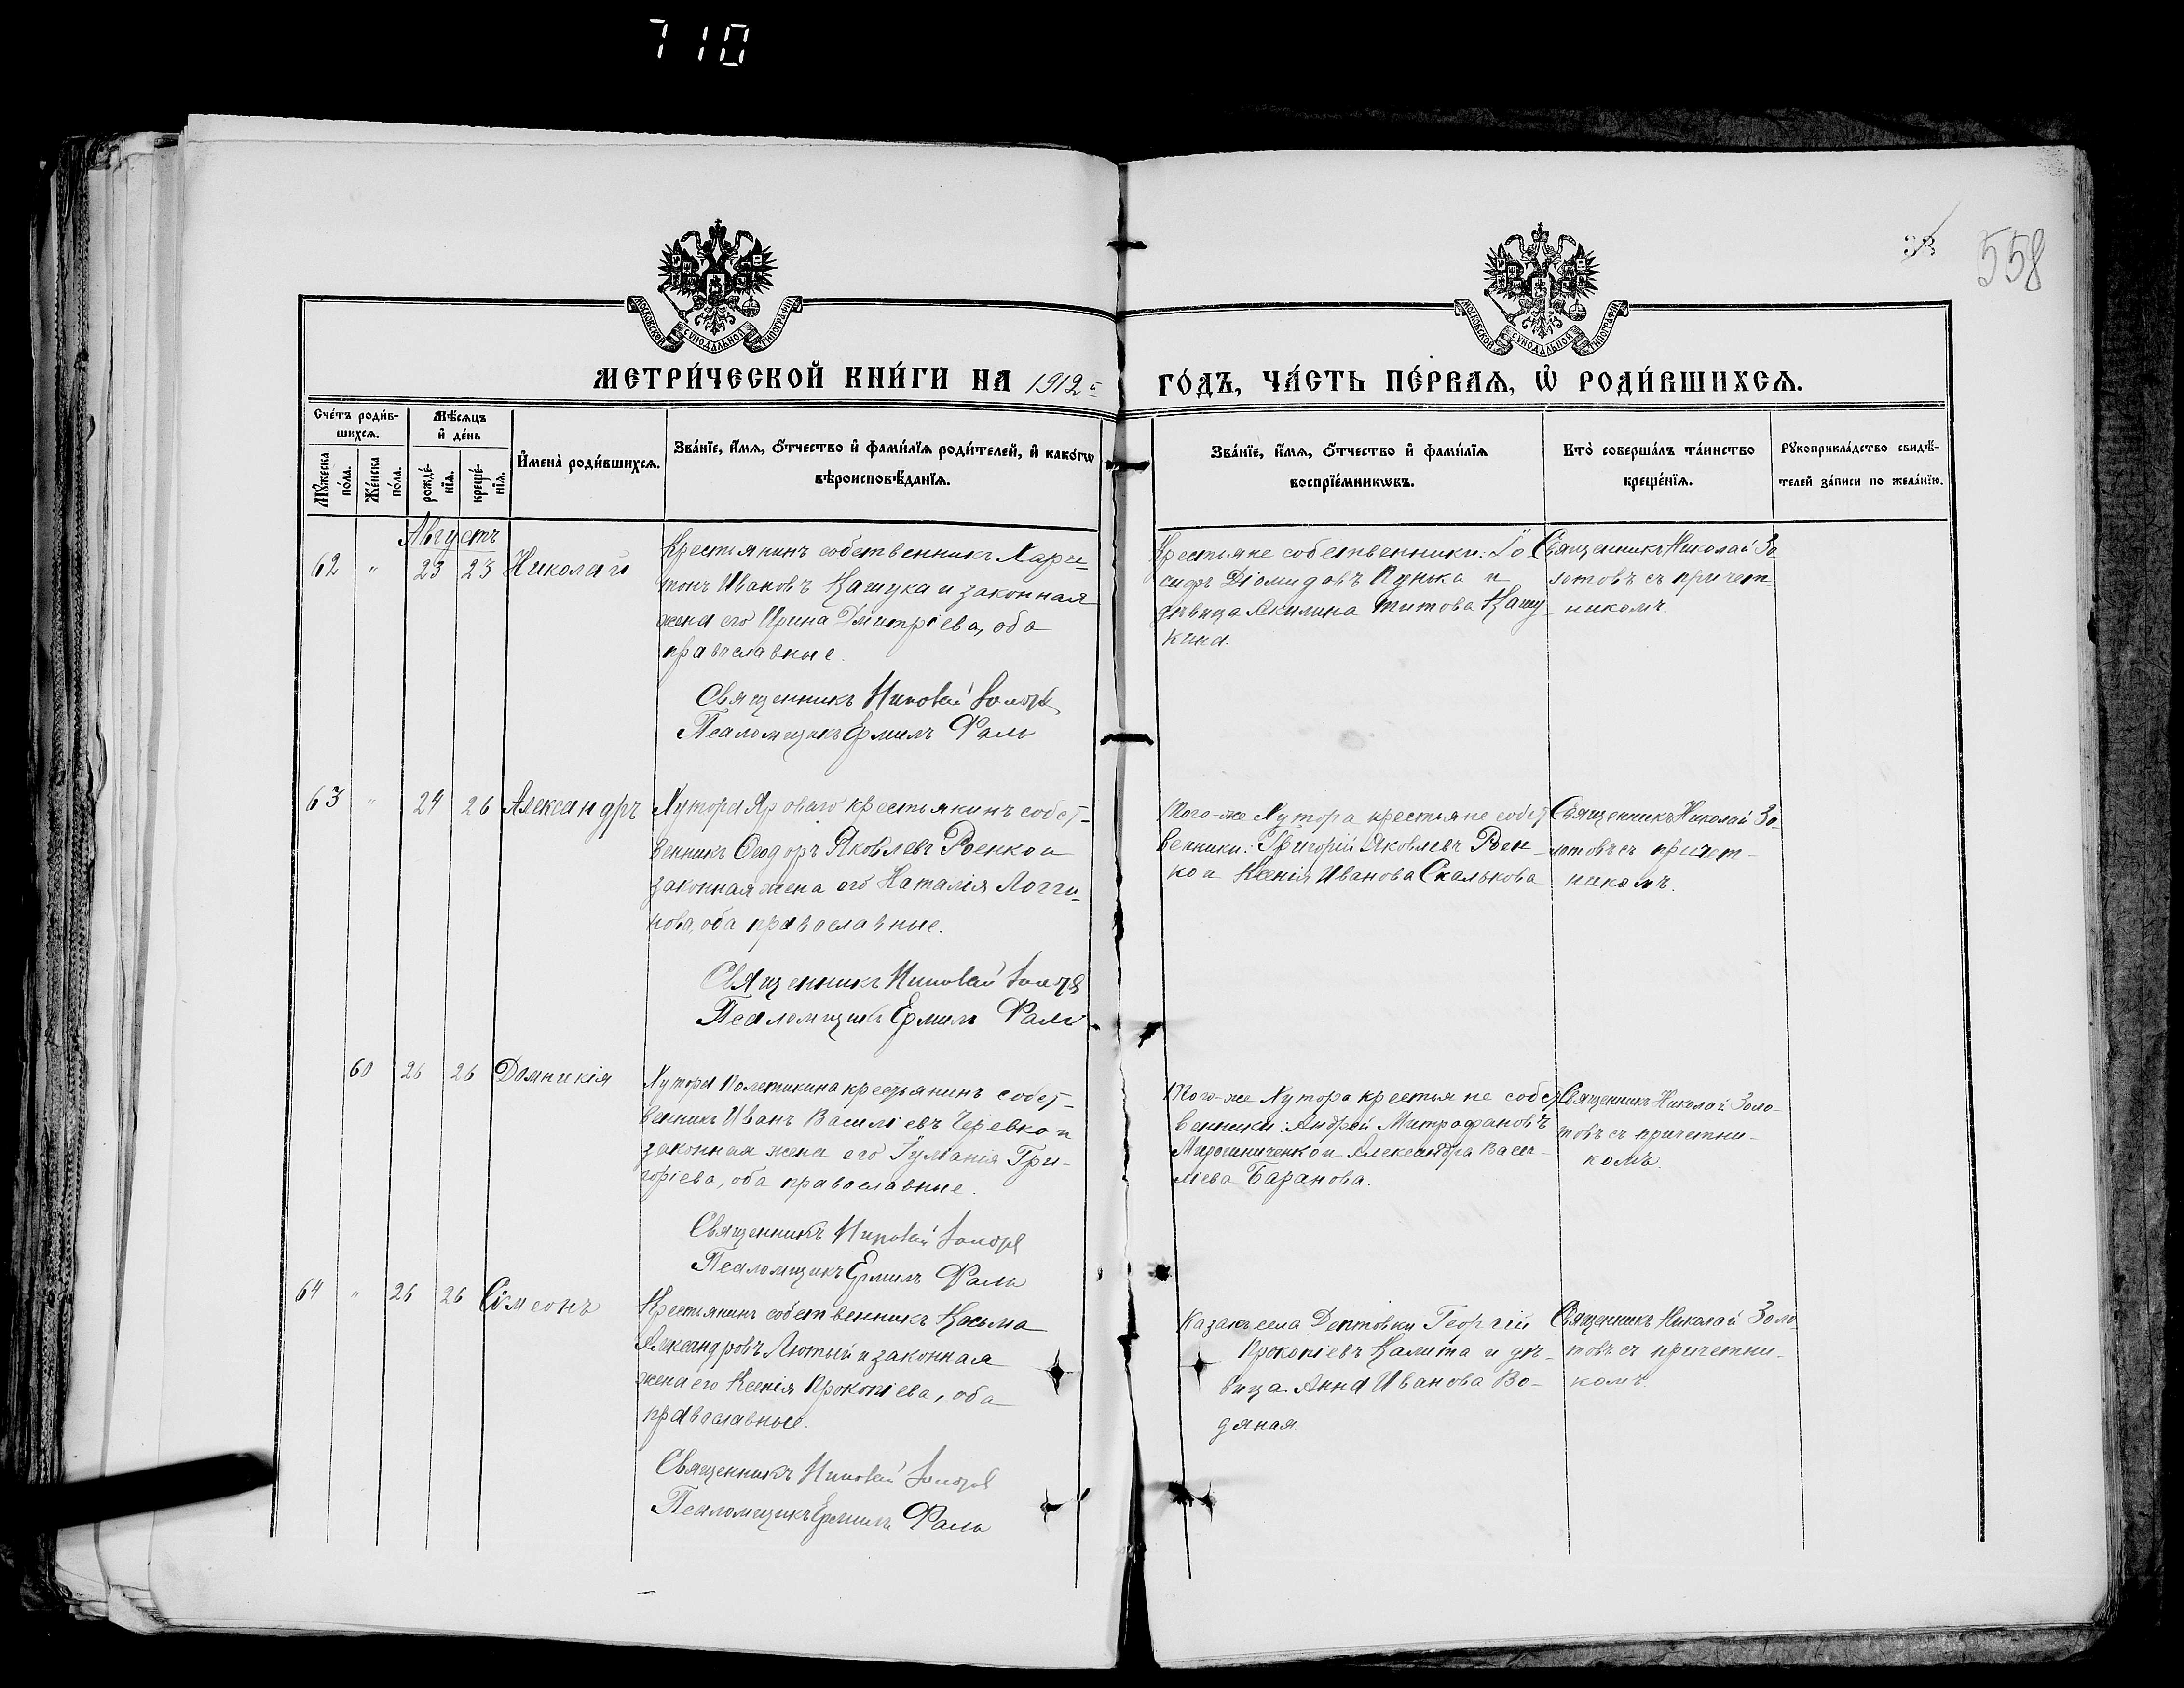 710
33 558
МОСКОВСКОЙ СѴНОДАЛЬНОЙ ТИПОГРАФІИ
МОСКОВСКОЙ СѴНОДАЛЬНОЙ ТИПОГРАФІИ
МЕТРИ́ЧЕСКОЙ КНИ́ГИ НА 1912 ГО́ДЪ, ЧА́СТЬ ПЕ́РВАѦ, Ѽ РОДИ́ВШИХСѦ.
Сче́тъ роди́в-
шихсѧ.
Мѣ́сѧцъ
и҆ де́нь
Мꙋ́жеска по́ла.
Же́нска по́ла.
рожде́-
нїѧ.
креще́-
нїѧ.
И҆мена̀ роди́вшихсѧ.
Зва́нїе, и҆́мѧ, ѻ҆́тчество и҆ фами́лїѧ роди́телей, и҆ како́гѡ
вѣроисповѣ́данїѧ.
Зва́нїе, и҆́мѧ, ѻ҆́тчество и҆ фами́лїѧ
воспрїе́мникѡвъ.
Кто̀ соверша́лъ та́инство
креще́нїѧ.
Рꙋкоприкла́дство свидѣ́-
телей за́писи по жела́нїю.
Августъ
62 " 23 23 Николай
Крестьянинъ собственникъ Хари-
тонъ Ивановъ Кашука и законная
жена его Ирина Дмитріева, оба
православные.
Священникъ Николай Золотов
Псаломщикъ Ермилъ Фаль
Крестьяне собственники: Іо
сифъ Діомидовъ Пунька и
дѣвица Акилина Титова Кашу
кина.
Священникъ Николай Зо
лотовъ съ причет
никомъ.
63 " 24 26 Александръ
Хутора Яроваго крестьянинъ собст-
венникъ Ѳеодоръ Яковлевъ Роенко и
законная жена его Наталія Логги-
нова, оба православные.
Священникъ Николай Золотов
Псаломщикъ Ермилъ Фаль
Того-же Хутора крестьяне собст
венники: Григорій Яковлевъ Роен-
ко и Ксенія Иванова Скалькова
Священникъ Николай Зо-
лотовъ съ причет-
никомъ.
60 26 26 Домникія
Хутора Полетикина крестьянинъ собст-
венникъ Иванъ Василіевъ Черевко и
законная жена его Іуліанія Гри-
горіева, оба православные.
Священникъ Николай Золотов
Псаломщикъ Ермилъ Фаль
Того-же Хутора крестьяне собст
венники: Андрей Митрофановъ
Мирошниченко и Александра Васи-
ліева Баранова.
Священникъ Николай Золо-
товъ съ причетни-
комъ.
64 " 26 26 Сімеонъ
Крестьянинъ собственникъ Косьма
Александровъ Лютый и законная
жена его Ксенія Прокопіева, оба
православные.
Священникъ Николай Золотов
Псаломщикъ Ермилъ Фаль
Казакъ села Дептовки Георгій
Прокопіевъ Калита и дѣ-
вица Анна Иванова Во-
дяная.
Священникъ Николай Золо
товъ съ причетни-
комъ.